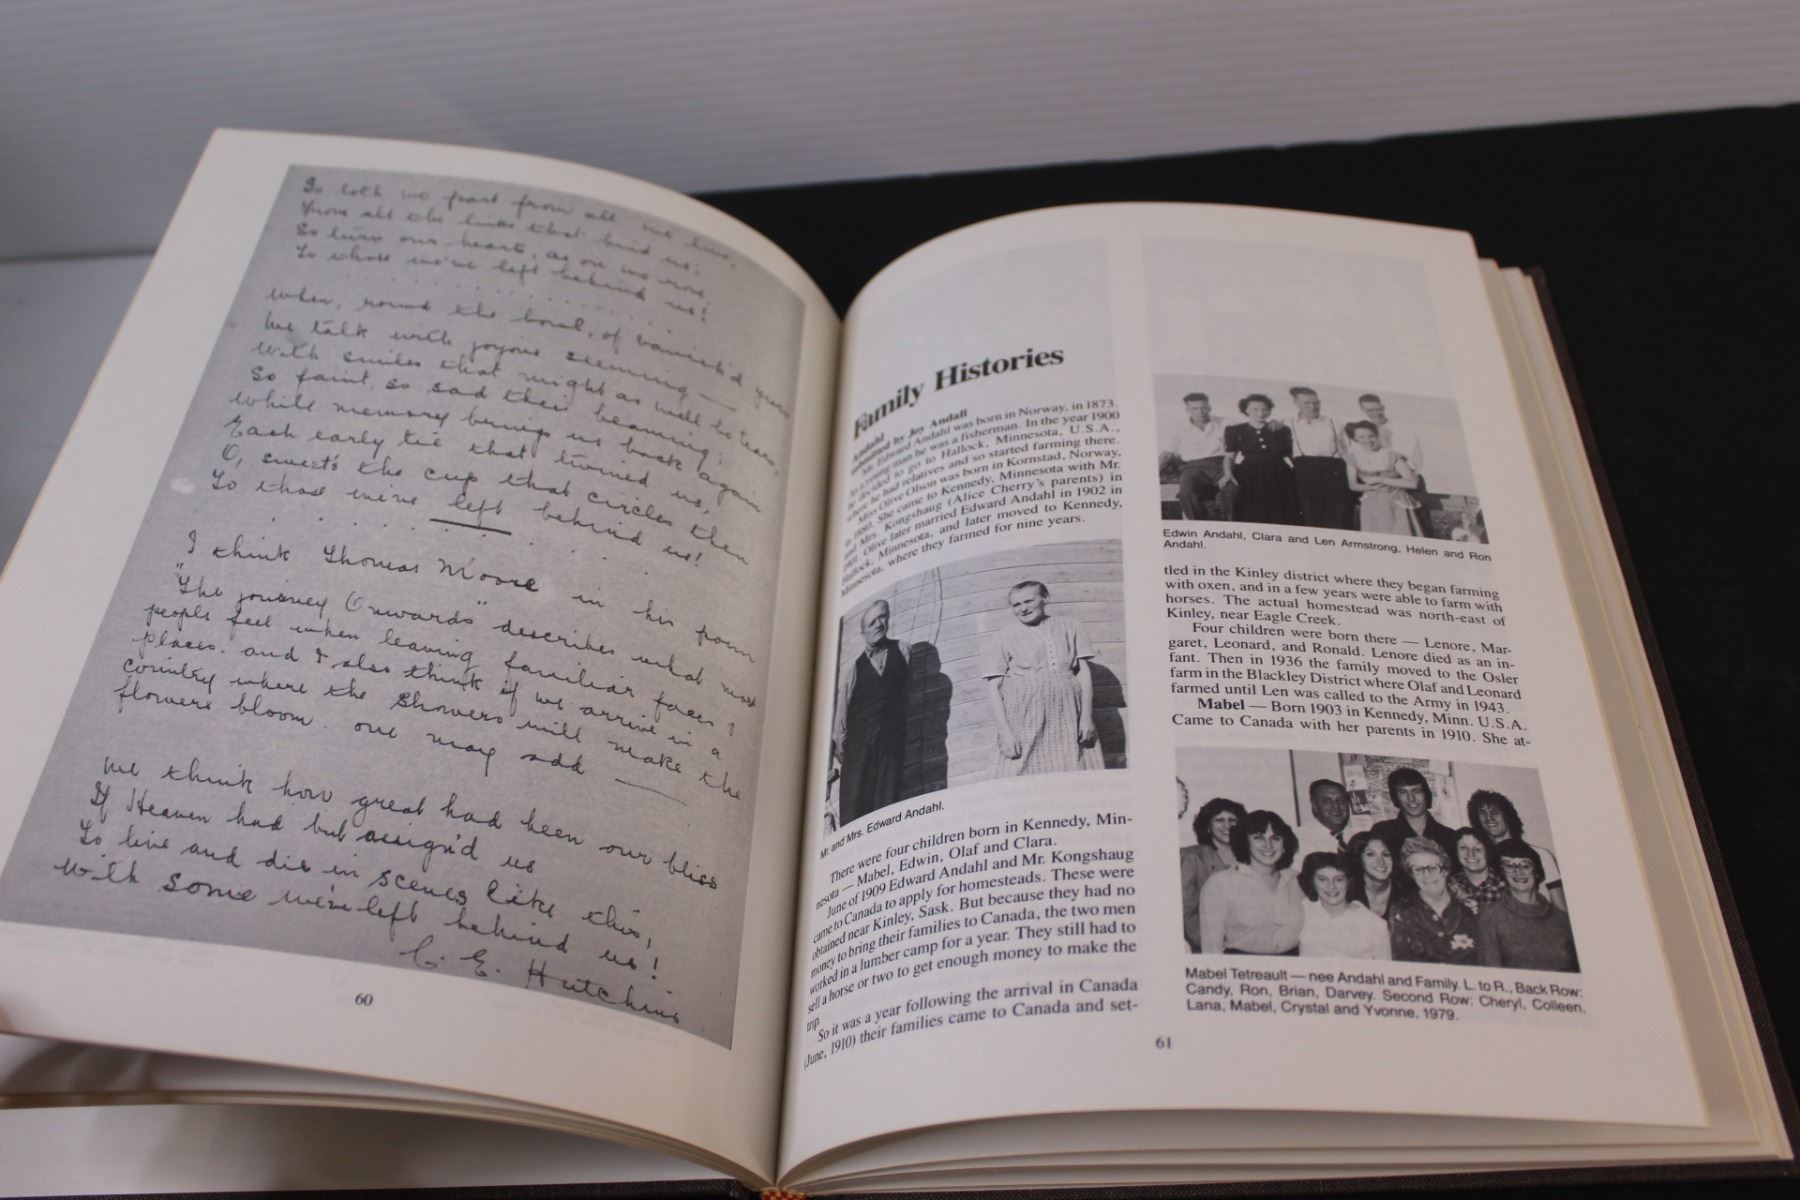 So loth we part from all we love,
From all the links that bind us;
So turn our hearts, as on we rove,
To those we've left behind us!
When, round the bowl, of vanish'd years
We talk with joyous seeming —
With smiles that might as well be tears,
So faint, so sad their beaming;
While memory brings us back again
Each early tie that twined us,
O, sweet's the cup that circles then
To those we've left behind us!
I think Thomas Moore in his poem
"The journey Onwards" describes what most
people feel when leaving familiar faces &
places. and I also think if we arrive in a
country where the showers will make the
flowers bloom. one may add —
We think how great had been our bliss
If Heaven had but assign'd us
To live and die in scenes like this,
With some we've left behind us!
C. E. Hutchins
60
Family Histories
Andahl
submitted by Joy Andall
Mr. Edward Andahl was born in Norway, in 1873.
As a young man he was a fisherman. In the year 1900
he decided to go to Hallock, Minnesota, U.S.A.,
where he had relatives and so started farming there.
Miss Olive Olson was born in Kornstad, Norway,
in 1880. She came to Kennedy, Minnesota with Mr.
and Mrs. Kongshaug (Alice Cherry's parents) in
1901. Olive later married Edward Andahl in 1902 in
Hallock, Minnesota, and later moved to Kennedy,
Minnesota, where they farmed for nine years.
Mr. and Mrs. Edward Andahl.
There were four children born in Kennedy, Min-
nesota — Mabel, Edwin, Olaf and Clara.
June of 1909 Edward Andahl and Mr. Kongshaug
came to Canada to apply for homesteads. These were
obtained near Kinley, Sask. But because they had no
money to bring their families to Canada, the two men
worked in a lumber camp for a year. They still had to
sell a horse or two to get enough money to make the
trip.
So it was a year following the arrival in Canada
(June, 1910) their families came to Canada and set-
Edwin Andahl, Clara and Len Armstrong, Helen and Ron
Andahl.
tled in the Kinley district where they began farming
with oxen, and in a few years were able to farm with
horses. The actual homestead was north-east of
Kinley, near Eagle Creek.
Four children were born there — Lenore, Mar-
garet, Leonard, and Ronald. Lenore died as an in-
fant. Then in 1936 the family moved to the Osler
farm in the Blackley District where Olaf and Leonard
farmed until Len was called to the Army in 1943.
Mabel — Born 1903 in Kennedy, Minn. U.S.A.
Came to Canada with her parents in 1910. She at-
Mabel Tetreault — nee Andahl and Family. L. to R., Back Row:
Candy, Ron, Brian, Darvey. Second Row: Cheryl, Colleen,
Lana, Mabel, Crystal and Yvonne, 1979.
61